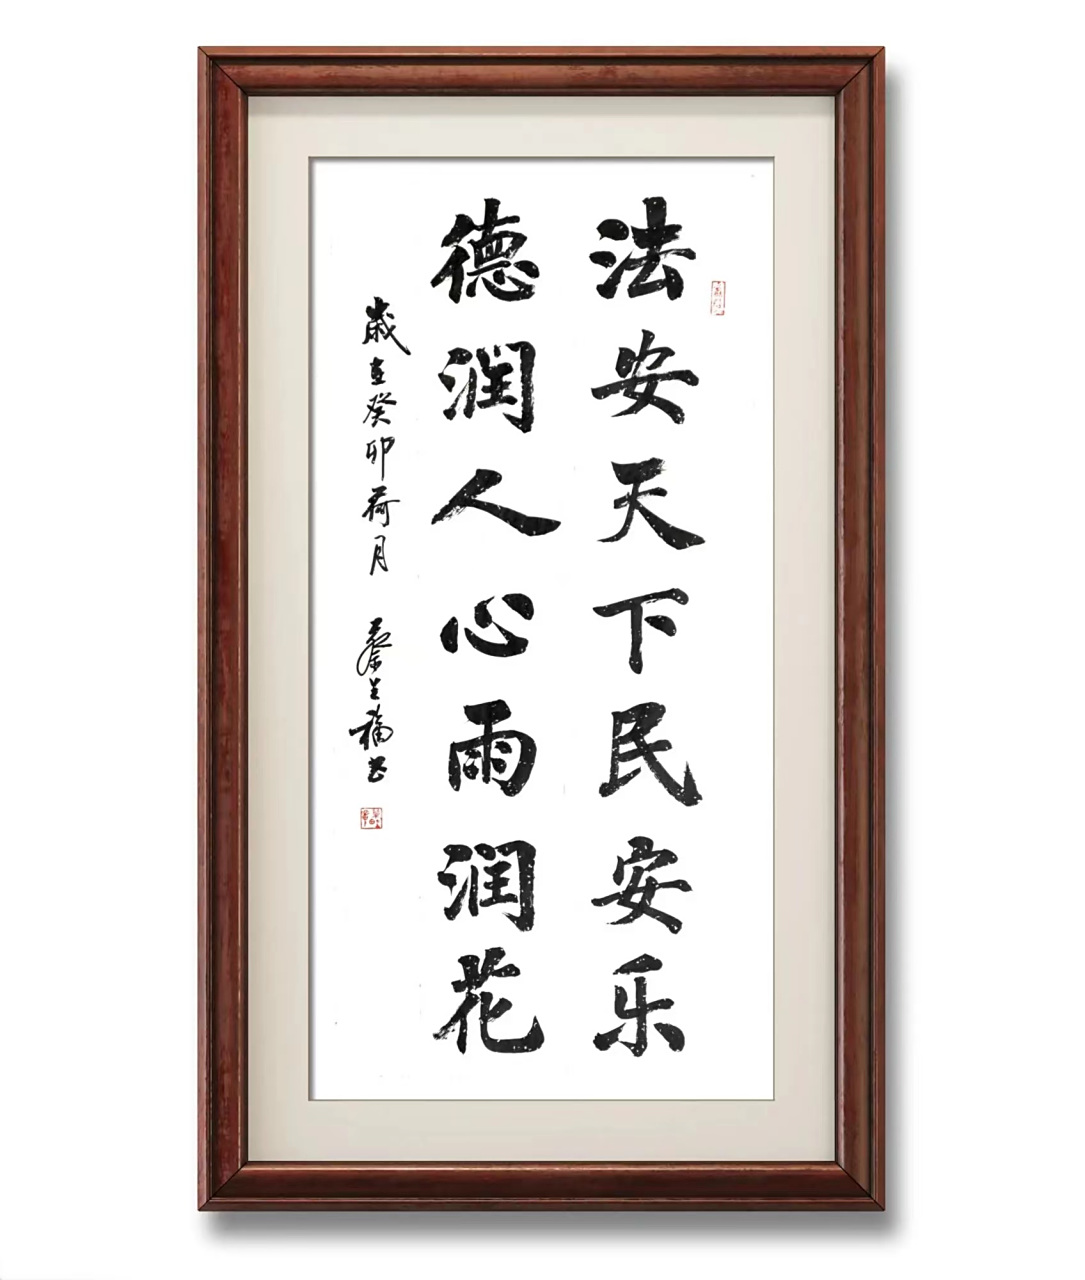 法安天下民安乐
德润人心雨润花
岁在癸卯荷月 蔡兰福书